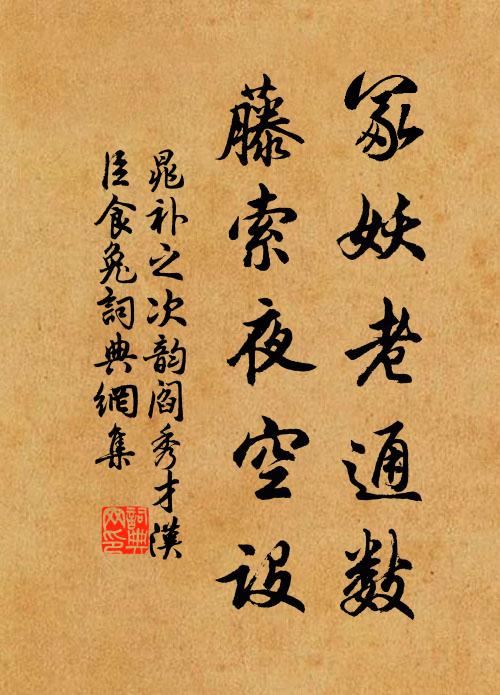 冢妖老通数
藤索夜空设
晁补之次韵阎秀才汉
臣食兔詞典網集
詞典網印